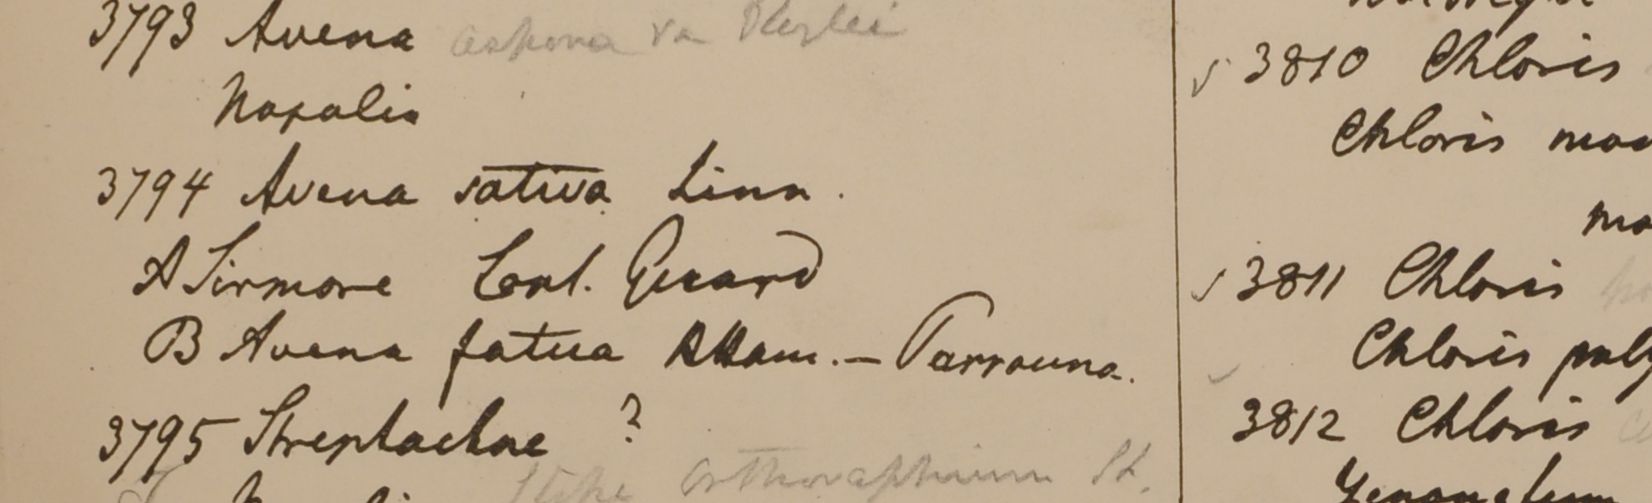 3793 Avena aspera va
Napalia
3794 Avena sativa Linn.
A Sirmore Capt. Gerard
B Avena fatua BHam. — Parrouna.
3795 Streptachne ?
Stipa orthoraphium St.
✓ 3810 Chloris
Chloris
✓ 3811 Chloris
Chloris poly
3812 Chloris